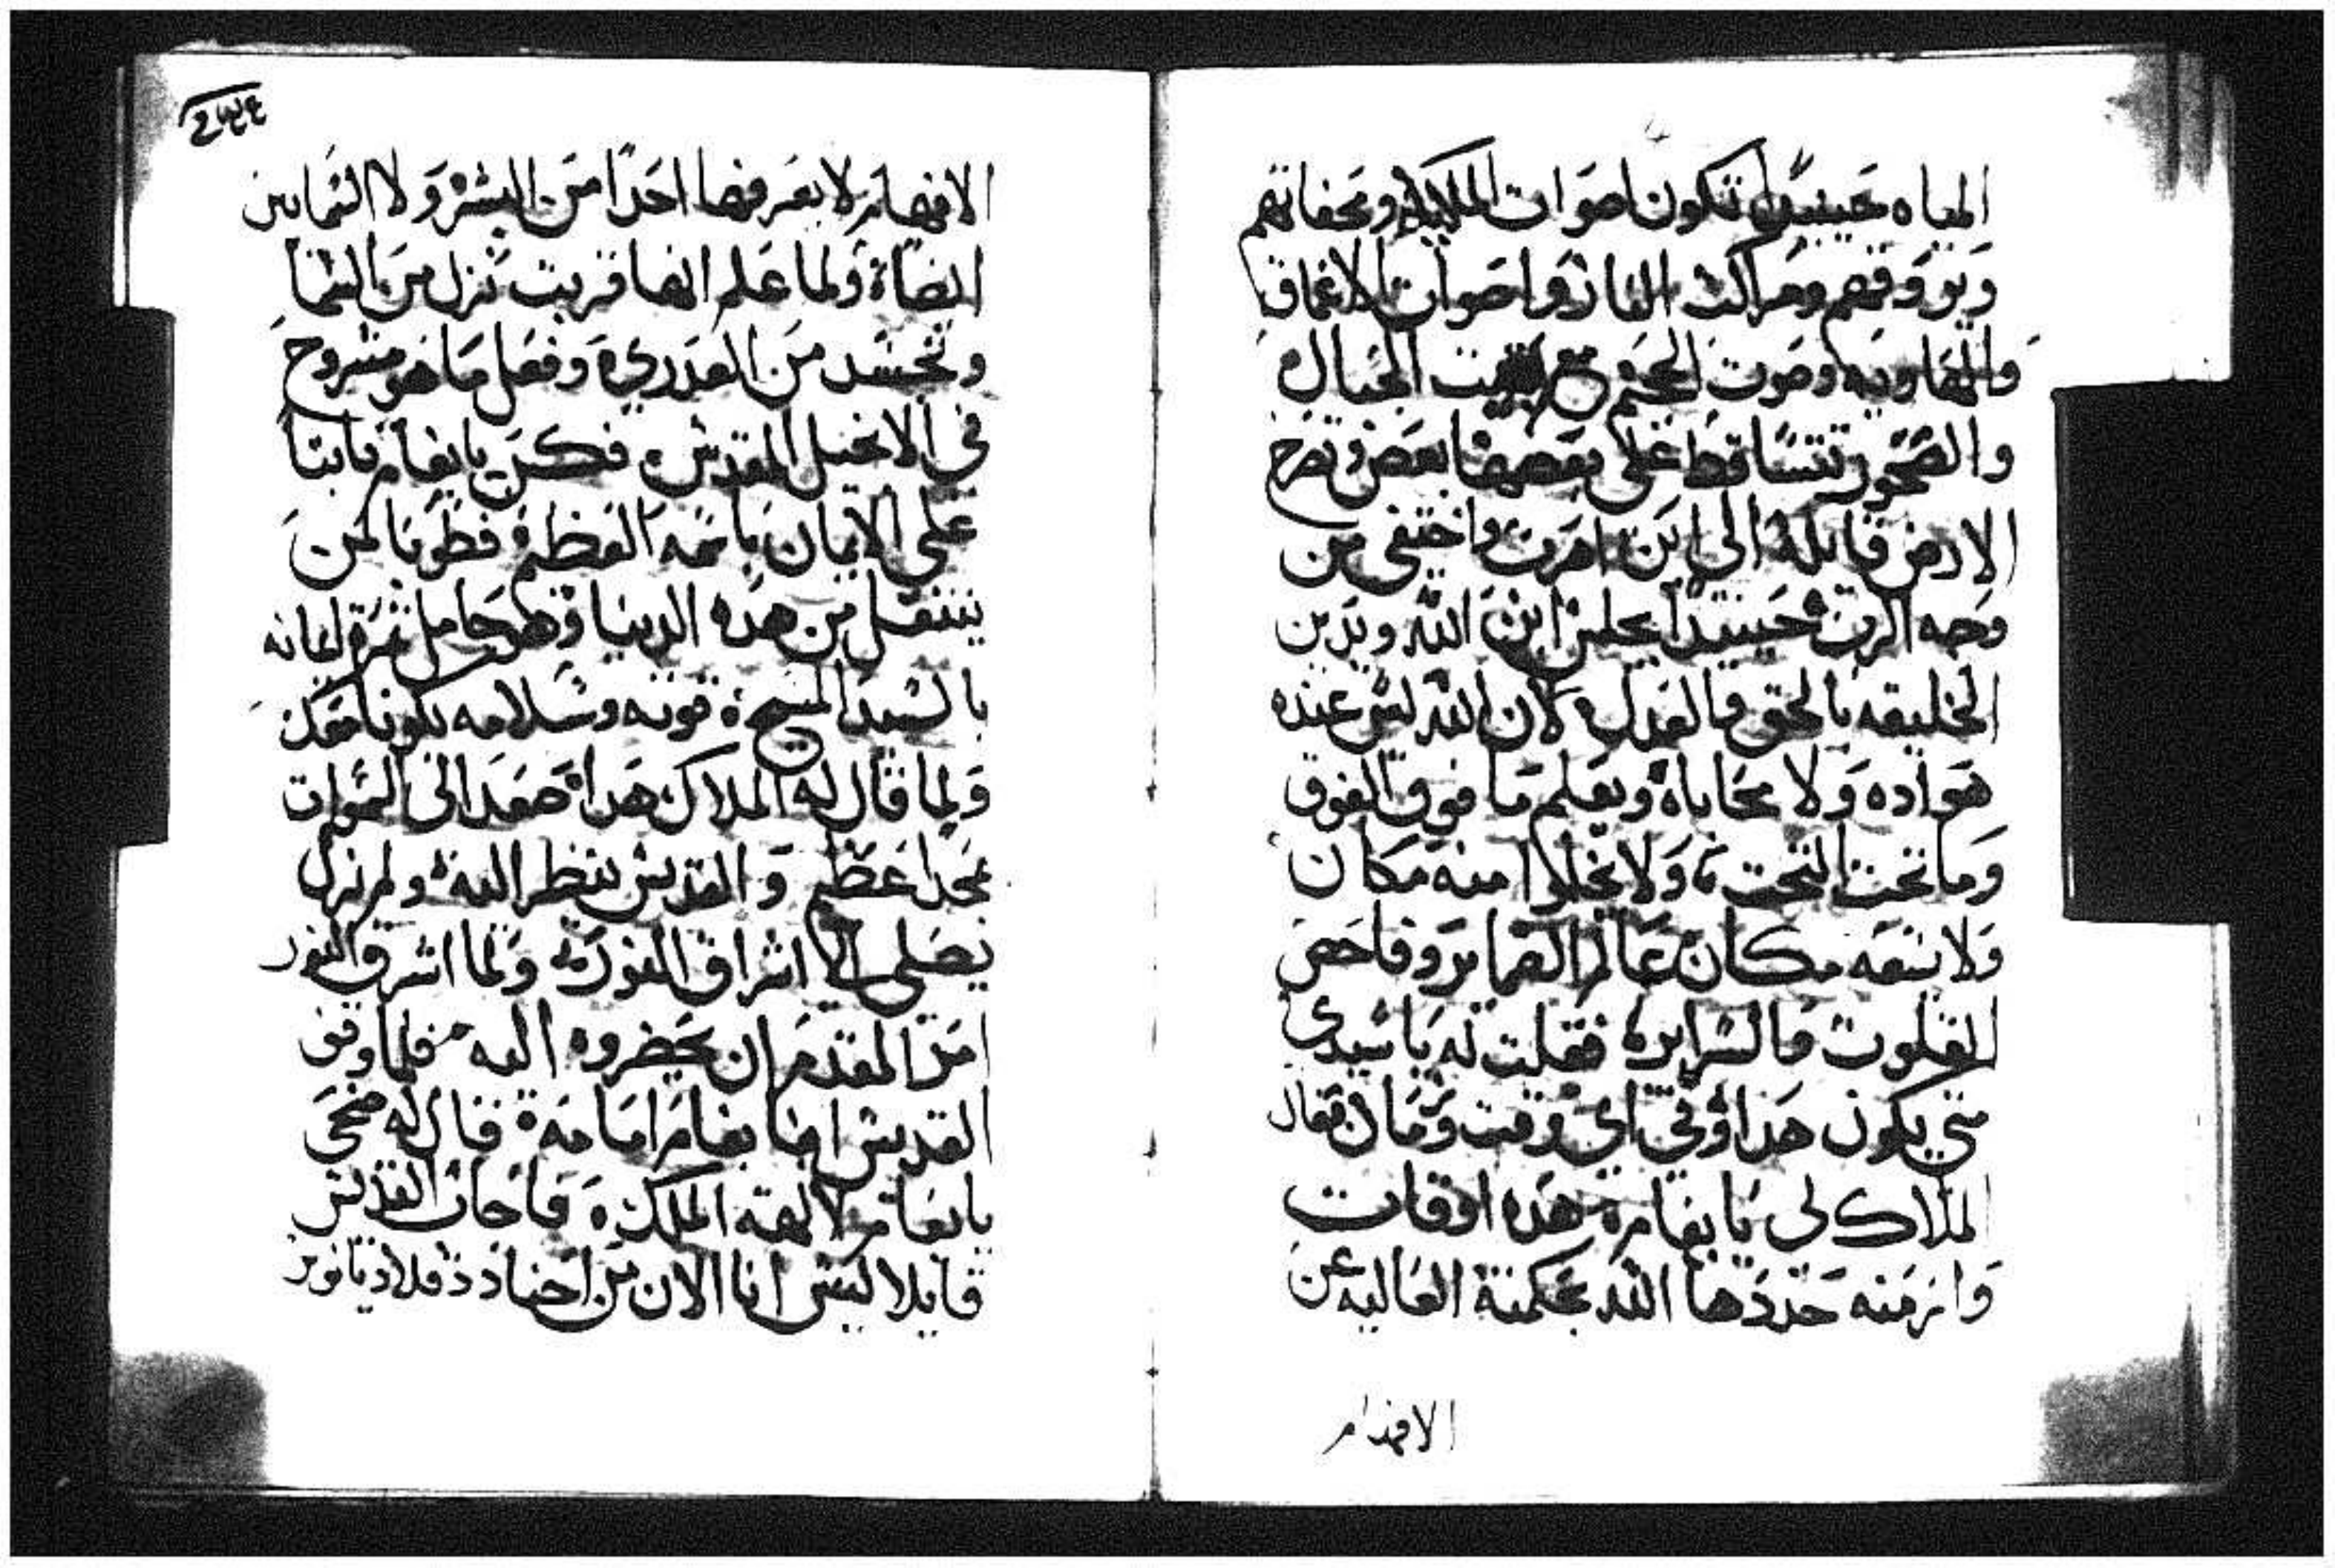 المياه حينيدًا تكون اصوات الملايكه ومحفاتهم
وبوروقهم ومراكب النار واصوات الاعماق
والهاويه وصوت الجحيم مع الجبال
والصخور تتساقط على بعضها بعض وتصرخ
الارض قايله الى اين اهرب واختفى من
وجه الرب حينيدًا يجلس ابن الله ويدين
الخليقه بالحق والعدل لان الله ليس عنده
هواده ولا محاباة ويعلم ما فوق الفوق
وما تحت التحت ولا يخلوا منه مكان
ولا يسعه مكان عالم الضماير وفاحص
القلوب والسراير فقلت له يا سيدي
متي يكون هدا وفي اي وقت وزمان فقال
الملاك لي يا بغام هده اوقات
وازمنه حددها الله بحكمته العاليه عن
الافهام
٢٤٤
الافهام لا يعرفها احدًا من البشر ولا السمايين
ايضاة ولما علم انها قربت نزل من السما
وتجسد من العدرى وفعل ما هو مشروح
في الانجيل المقدس فكن يا بغام ثابتا
على الايمان باسمه العظيم فطوبا لمن
ينتقل من هده الدنيا وهو حامل ثمرة ايمانه
بالسيد المسيح قوته وسلامه يكونا معك
ولما قال له الملاك هدا صعد الى السموات
بمجدًا عظيم والقديس ينظر اليه ولم نزل
يصلى الا اشراق النور ولما اشرق النور
امر المقدم ان يحضروه اليه فلما وقف
القديس ابا بغام امامه قال له ضحي
يا بغام لالهة الملك فاجاب القديس
قايلا ليس انا الان من اجناد دقلاديانوس